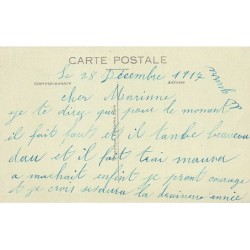 CARTE POSTALE
CORRESPONDANCE ADRESSE
Le 28 Décembre 1917
cher Marinne
je te direz que pour le moment
il fait fauts et il tanbe beaucou
dau et il fait trai mauvez
a machait enfint je prent courage
je crois sesduira la dairniere année